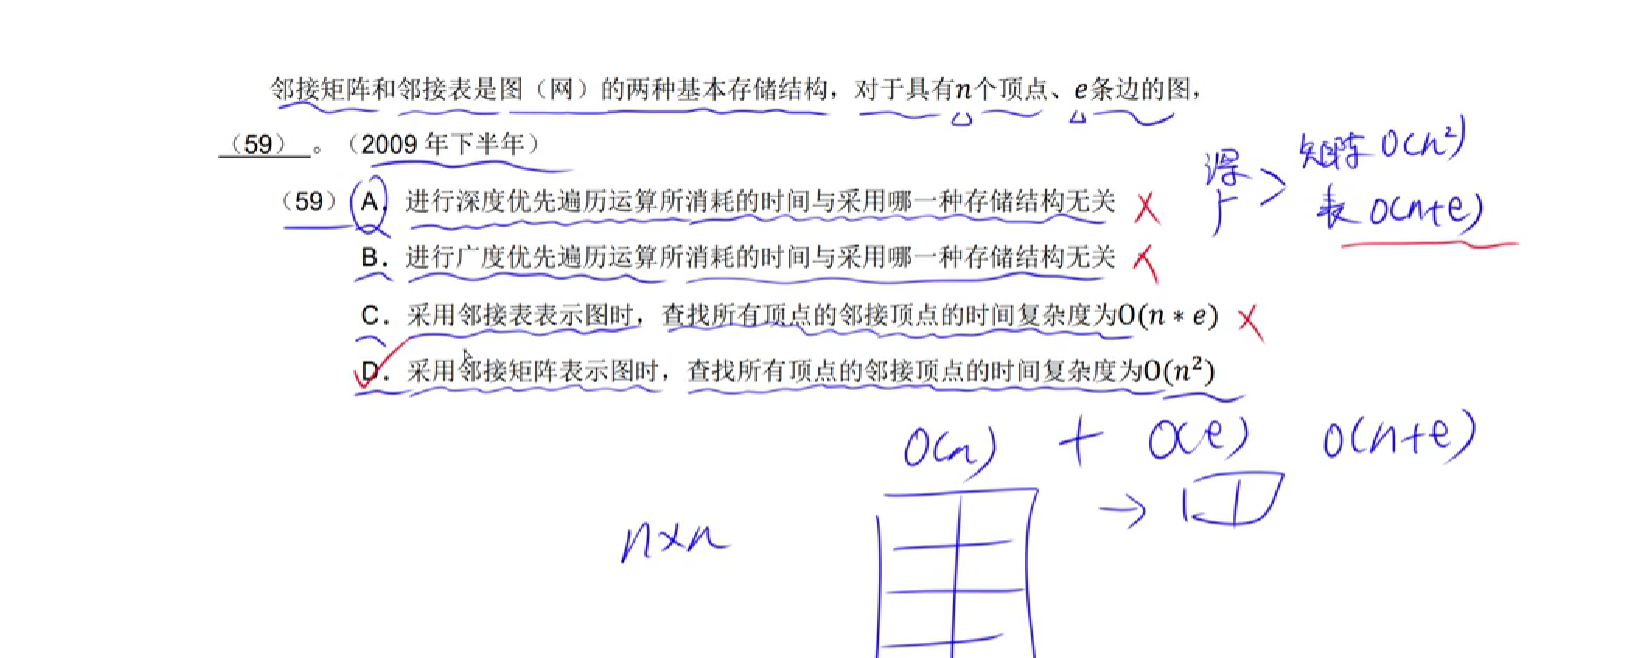 邻接矩阵和邻接表是图（网）的两种基本存储结构，对于具有n个顶点、e条边的图，
（59）。（2009 年下半年）
（59）A. 进行深度优先遍历运算所消耗的时间与采用哪一种存储结构无关 ×
B. 进行广度优先遍历运算所消耗的时间与采用哪一种存储结构无关 ×
C. 采用邻接表表示图时，查找所有顶点的邻接顶点的时间复杂度为O(n * e) ×
D. 采用邻接矩阵表示图时，查找所有顶点的邻接顶点的时间复杂度为O(n²)
深
广
矩阵 O(n²)
表 O(n+e)
O(n) + O(e) O(n+e)
n×n